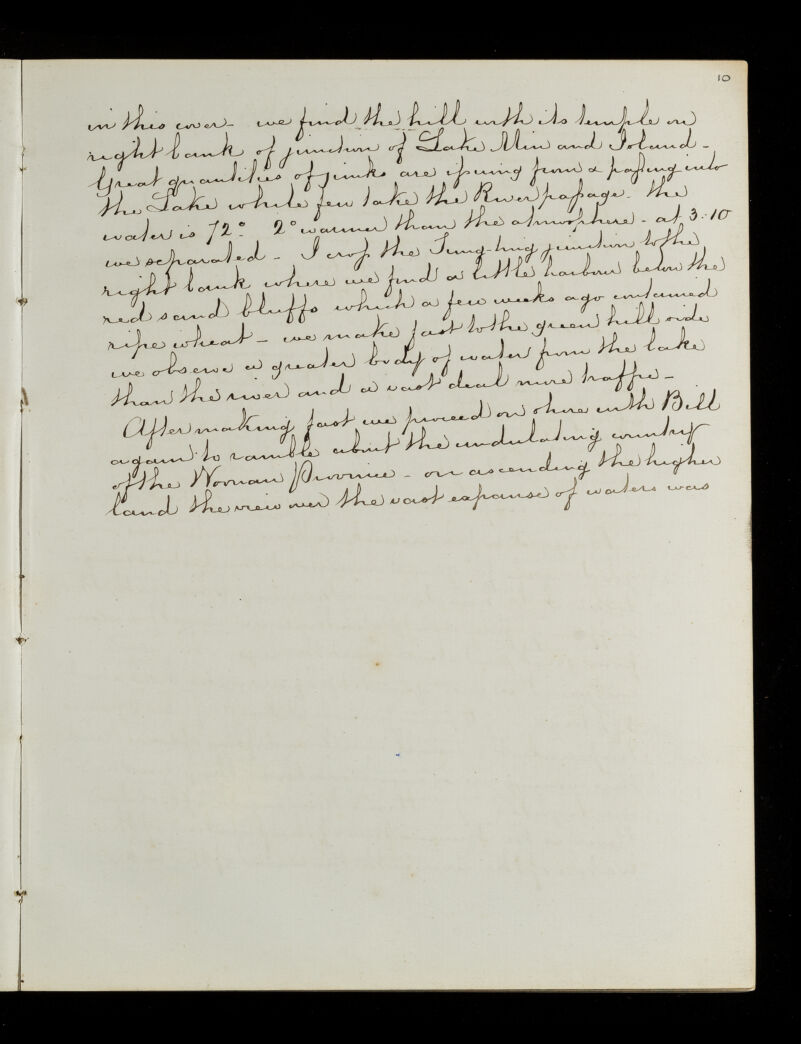 10
in this cover - we find the hill with its temple on
right bank of junction of Lake Min and Island -
Great quantities of junks are issuing from & passing into
the Lake while few take the River passage. the
water is 72° 2° warmer than the atmosphere - at 3.10
we separated - I cross the Tung-ting junction to the
right bank where we find a little harbour below the
red sand bluffs which a few weeks ago contained
ripe wheat - we make fast to the green hill side
we observe a greater body of water from the lake
than the river and a vast deal more traffic -
After making fast we proceed on shore with Bill
again to ramble about the undulating country
of the Woonan Province - on ascending the higher
land the view over the vast expanse of waters was